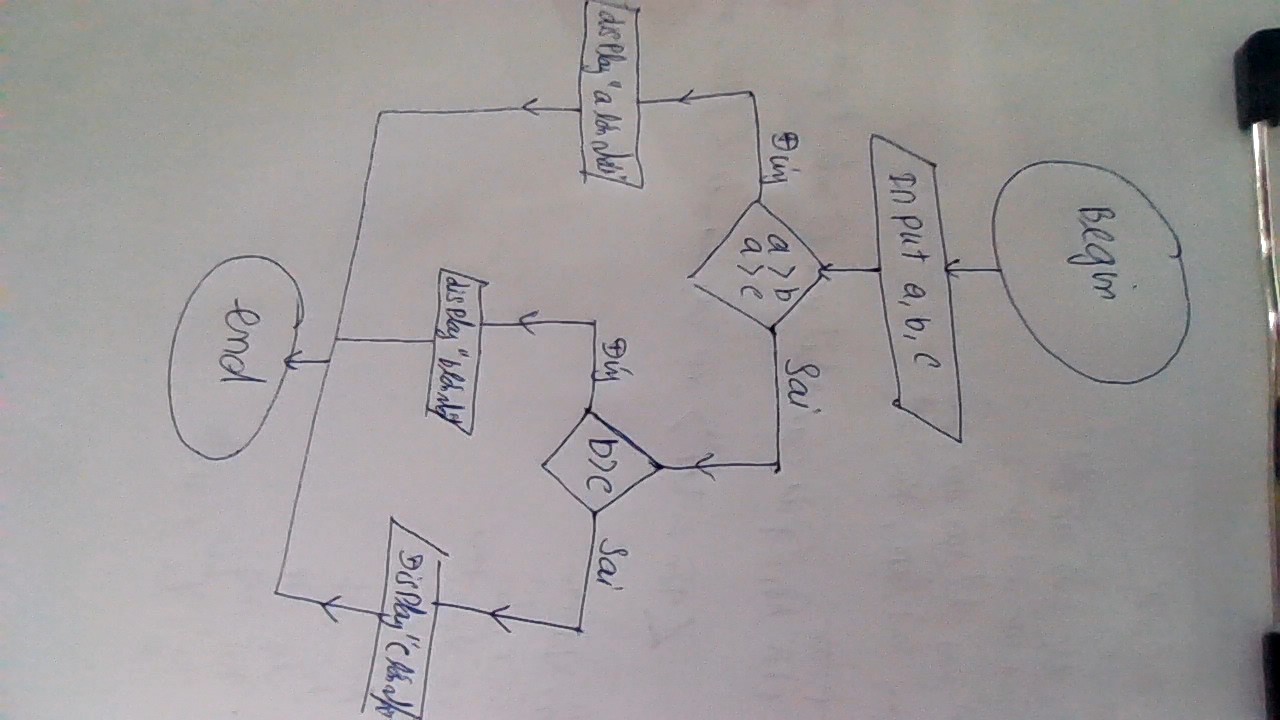 Begin
Input a, b, c
a > b
a > c
Đúng
Sai
display "a lớn nhất"
b > c
Đúng
Sai
display "b lớn nhất"
Display "c lớn nhất
end